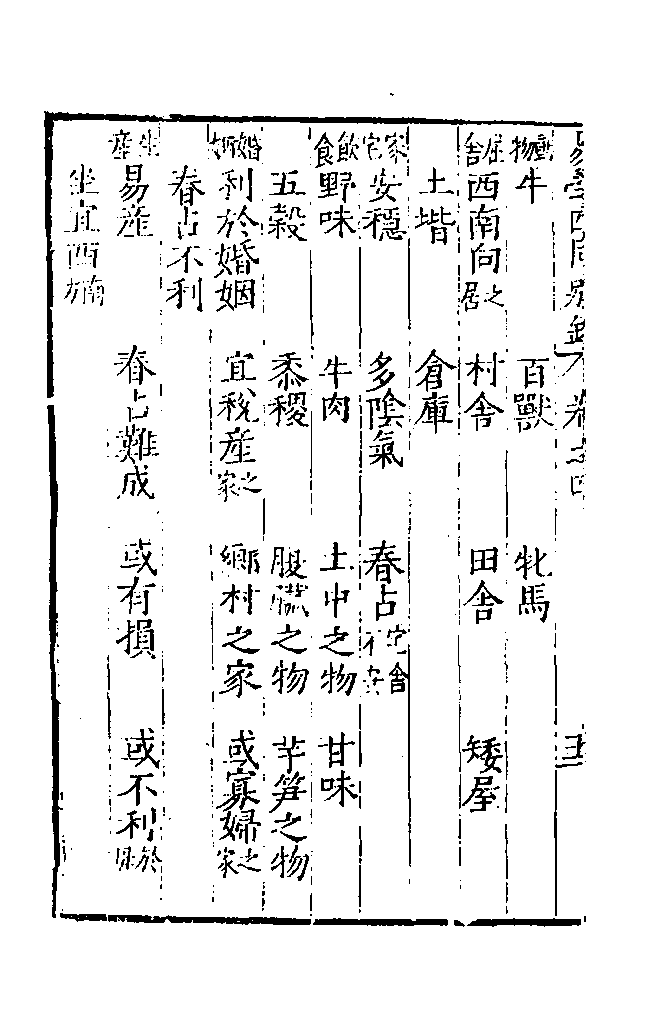 易學四同別錄 卷之四 五
動物 牛 百獸 牝馬
居舍 西南向之居 村舍 田舍 矮屋
土堦 倉庫
家宅 安穩 多陰氣 春占宅舍不安
飲食 野味 牛肉 土中之物 甘味
五穀 黍稷 腹臟之物 芋笋之物
婚姻 利於婚姻 宜稅産之家 鄉村之家 或寡婦之家
春占不利
生産 易産 春占難成 或有損 或不利於母
坐宜西南方